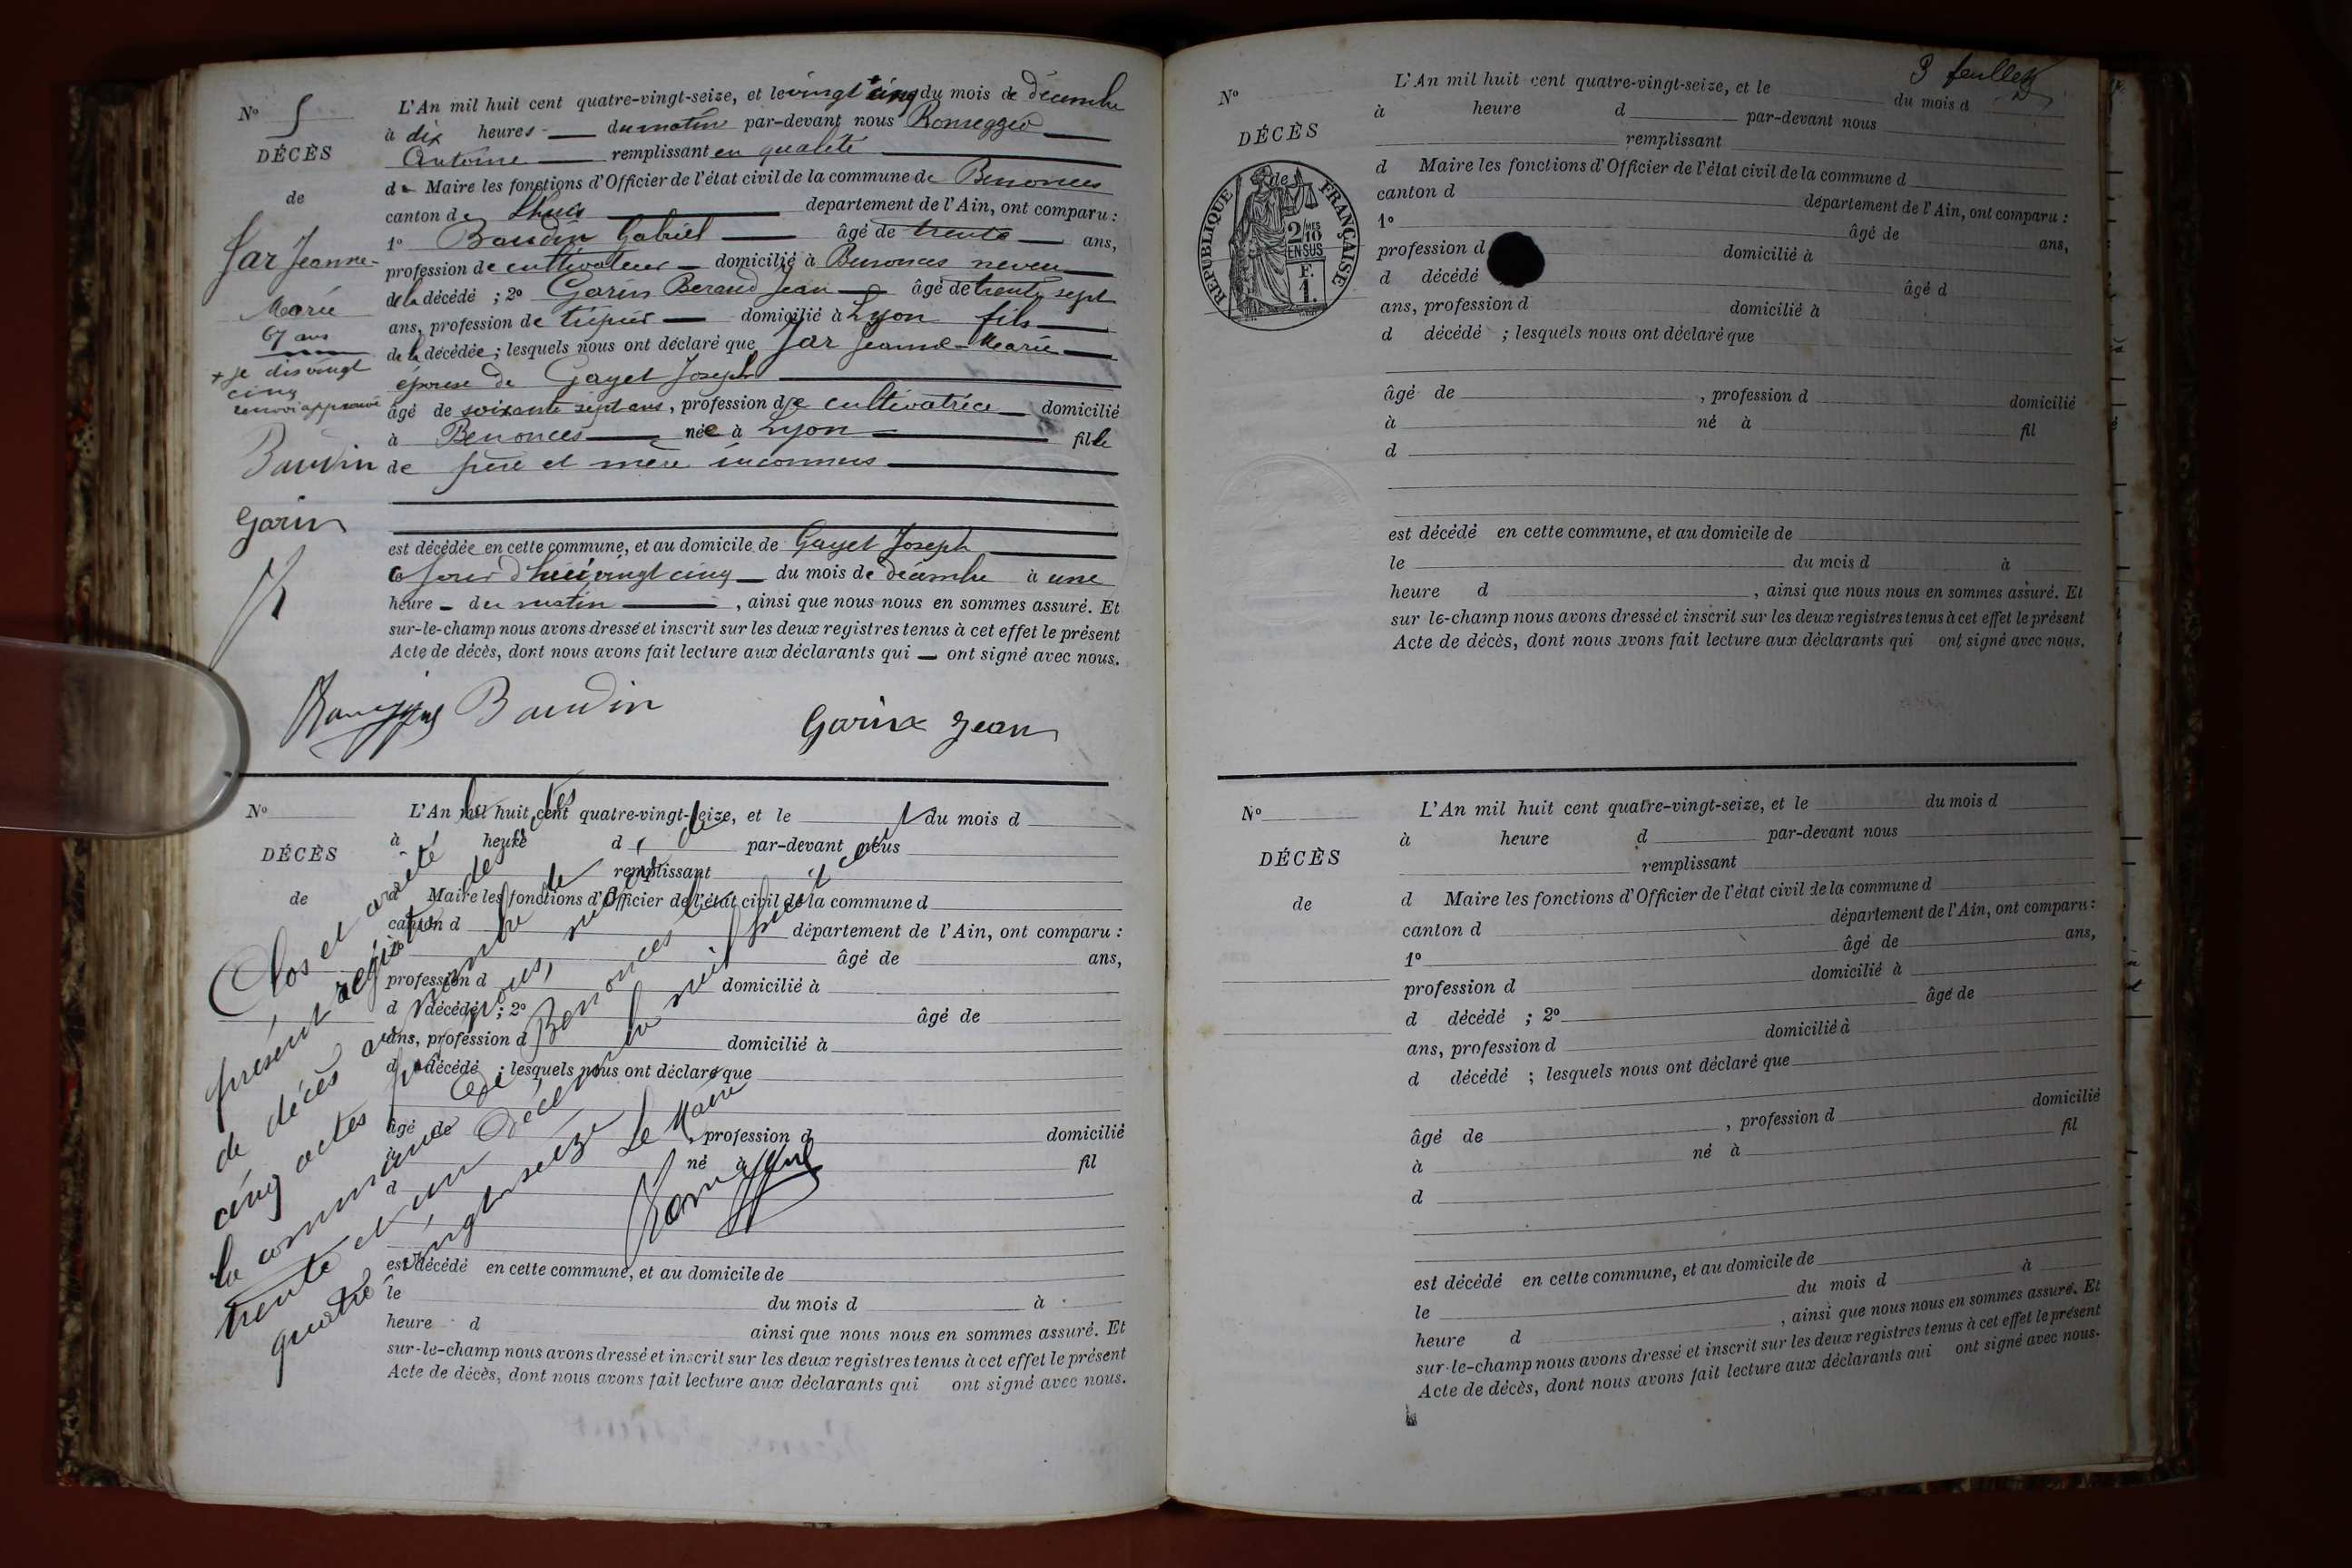 N° 5
DÉCÈS
de
Jar Jeanne-
Marie
67 ans
+ Je dis vingt
cinq
renvoi approuvé
Baudin
Garin
L'An mil huit cent quatre-vingt-seize, et le vingt cinq du mois de décembre
à dix heures du matin par-devant nous
Antoine remplissant en qualité
de Maire les fonctions d'Officier de l'état civil de la commune de Benonces
canton de Lhuis département de l'Ain, ont comparu :
1° Baudin Gabriel âgé de trente ans,
profession de cultivateur domicilié à Benonces neveu
de la décédé ; 2° Garin Beraud Jean âgé de trente sept
ans, profession de domicilié à Lyon fils
de la décédée ; lesquels nous ont déclaré que Jar Jeanne-Marie
épouse de Gayet Joseph
âgé de soixante sept ans, profession de cultivatrice domicilié
à Benonces née à Lyon fille
de père et mère inconnus
est décédée en cette commune, et au domicile de Gayet Joseph
vingt cinq du mois de décembre à une
heure du matin, ainsi que nous nous en sommes assuré. Et
sur-le-champ nous avons dressé et inscrit sur les deux registres tenus à cet effet le présent
Acte de décès, dont nous avons fait lecture aux déclarants qui ont signé avec nous.
Baudin Garin Jean
N°
DÉCÈS
de
L'An mil huit cent quatre-vingt-seize, et le du mois d
à heure d par-devant nous
remplissant
d Maire les fonctions d'Officier de l'état civil de la commune d
canton d département de l'Ain, ont comparu :
âgé de ans,
profession d domicilié à
d décédé ; 2° âgé de
ans, profession d domicilié à
d décédé ; lesquels nous ont déclaré que
âgé de , profession d domicilié
à né à fil
d
est décédé en cette commune, et au domicile de
le du mois d à
heure d ainsi que nous nous en sommes assuré. Et
sur-le-champ nous avons dressé et inscrit sur les deux registres tenus à cet effet le présent
Acte de décès, dont nous avons fait lecture aux déclarants qui ont signé avec nous.
Clos et arrêté le
présent registre des
de décès au nombre de
cinq actes par nous, de
la commune de Benonces le
trente et un décembre mil huit cent
quatre vingt seize
Le Maire
3 feuillets
N°
DÉCÈS
de
RÉPUBLIQUE FRANÇAISE
2/10 MES
EN SUS
F.
1.
L'An mil huit cent quatre-vingt-seize, et le du mois d
à heure d par-devant nous
remplissant
d Maire les fonctions d'Officier de l'état civil de la commune d
canton d département de l'Ain, ont comparu :
1° âgé de ans,
profession d domicilié à
d décédé âgé d
ans, profession d domicilié à
d décédé ; lesquels nous ont déclaré que
âgé de , profession d domicilié
à né à fil
d
est décédé en cette commune, et au domicile de
le du mois d à
heure d , ainsi que nous nous en sommes assuré. Et
sur le-champ nous avons dressé et inscrit sur les deux registres tenus à cet effet le présent
Acte de décès, dont nous avons fait lecture aux déclarants qui ont signé avec nous.
N°
DÉCÈS
de
L'An mil huit cent quatre-vingt-seize, et le du mois d
à heure d par-devant nous
remplissant
d Maire les fonctions d'Officier de l'état civil de la commune d
canton d département de l'Ain, ont comparu :
1° âgé de ans,
profession d domicilié à
d décédé ; 2° âgé de
ans, profession d domicilié à
d décédé ; lesquels nous ont déclaré que
âgé de , profession d domicilié
à né à fil
d
est décédé en cette commune, et au domicile de
le du mois d à
heure d , ainsi que nous nous en sommes assuré. Et
sur-le-champ nous avons dressé et inscrit sur les deux registres tenus à cet effet le présent
Acte de décès, dont nous avons fait lecture aux déclarants qui ont signé avec nous.